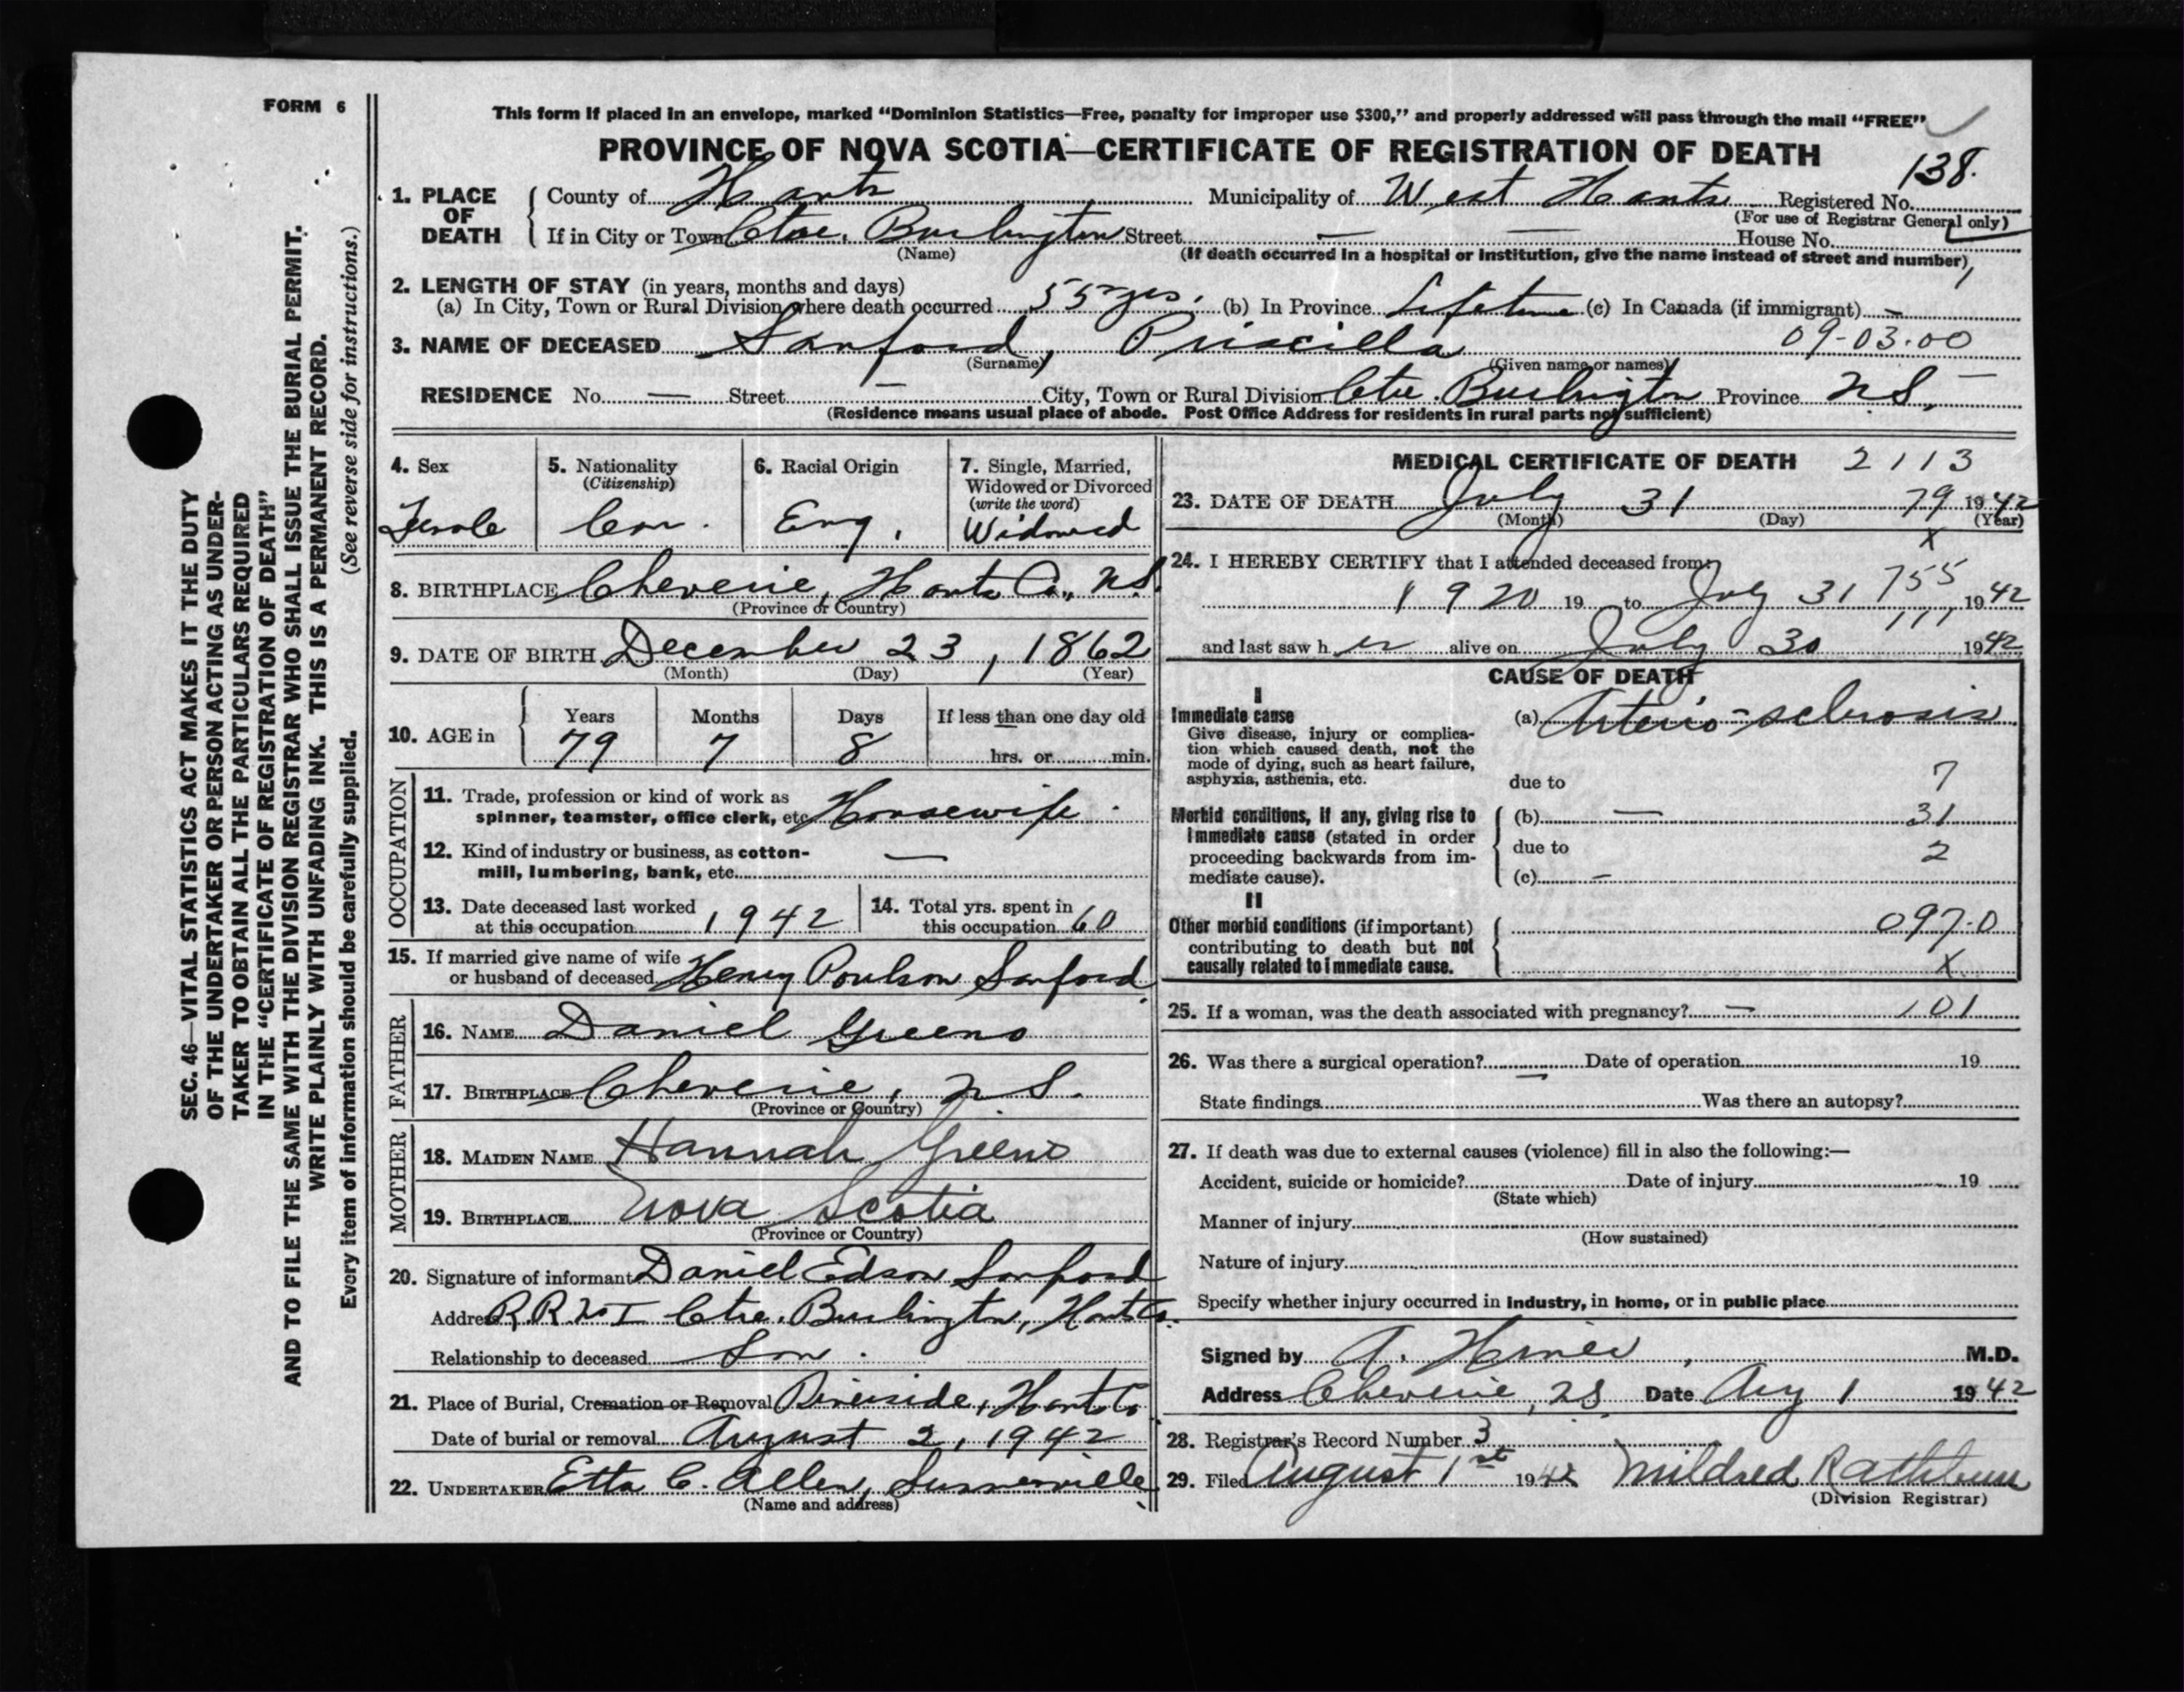 FORM 6
This form if placed in an envelope, marked "Dominion Statistics—Free, penalty for improper use $300," and properly addressed will pass through the mail "FREE"
PROVINCE OF NOVA SCOTIA—CERTIFICATE OF REGISTRATION OF DEATH
138.
1. PLACE OF DEATH
County of Hants Municipality of West Hants Registered No.
(For use of Registrar General only)
If in City or Town Ctre. Burlington Street — — House No.
(Name) (If death occurred in a hospital or institution, give the name instead of street and number)
2. LENGTH OF STAY (in years, months and days)
(a) In City, Town or Rural Division where death occurred 55 yrs. (b) In Province Lifetime (c) In Canada (if immigrant) —
3. NAME OF DECEASED Sanford, Priscilla 09-03.00
(Surname) (Given name or names)
RESIDENCE No. — Street — City, Town or Rural Division Ctre. Burlington Province N.S. —
(Residence means usual place of abode. Post Office Address for residents in rural parts not sufficient)
4. Sex
Female
5. Nationality
(Citizenship)
Can.
6. Racial Origin
Eng.
7. Single, Married,
Widowed or Divorced
(write the word)
Widowed
8. BIRTHPLACE Cheverie, Hants Co., N.S.
(Province or Country)
9. DATE OF BIRTH December 23, 1862
(Month) (Day) (Year)
10. AGE in
Years Months Days If less than one day old
79 7 8 hrs. or min.
OCCUPATION
11. Trade, profession or kind of work as
spinner, teamster, office clerk, etc. Housewife.
12. Kind of industry or business, as cotton-
mill, lumbering, bank, etc. —
13. Date deceased last worked
at this occupation 1942
14. Total yrs. spent in
this occupation 60
15. If married give name of wife
or husband of deceased Henry Poulson Sanford.
FATHER
16. NAME Daniel Greeno
17. BIRTHPLACE Cheverie, N.S.
(Province or Country)
MOTHER
18. MAIDEN NAME Hannah Greeno
19. BIRTHPLACE Nova Scotia
(Province or Country)
20. Signature of informant Daniel Edson Sanford
Address R.R. No 1 Ctre. Burlington, Hants Co.
Relationship to deceased Son.
21. Place of Burial, Cremation or Removal Riverside, Hants Co.
Date of burial or removal August 2, 1942
22. UNDERTAKER Etta C. Allen, Summerville
(Name and address)
MEDICAL CERTIFICATE OF DEATH 2113
23. DATE OF DEATH July 31 79 1942
(Month) (Day) (Year)
x
24. I HEREBY CERTIFY that I attended deceased from
755
1920 19 to July 31 1942
111
and last saw her alive on July 30 1942
CAUSE OF DEATH
I
Immediate cause
Give disease, injury or complica-
tion which caused death, not the
mode of dying, such as heart failure,
asphyxia, asthenia, etc.
(a) Arterio-sclerosis
due to 7
Morbid conditions, if any, giving rise to
immediate cause (stated in order
proceeding backwards from im-
mediate cause).
(b) — 31
due to 2
(c) —
II
Other morbid conditions (if important)
contributing to death but not
causally related to immediate cause.
097.0
X
25. If a woman, was the death associated with pregnancy? — 101
26. Was there a surgical operation? — Date of operation 19
State findings Was there an autopsy?
27. If death was due to external causes (violence) fill in also the following:—
Accident, suicide or homicide? Date of injury 19
(State which)
Manner of injury
(How sustained)
Nature of injury
Specify whether injury occurred in industry, in home, or in public place
Signed by A. M.D.
Address Cheverie, NS Date Aug 1 1942
28. Registrar's Record Number 3
29. Filed August 1st 1942 Mildred Rathbun
(Division Registrar)
SEC. 46—VITAL STATISTICS ACT MAKES IT THE DUTY
OF THE UNDERTAKER OR PERSON ACTING AS UNDER-
TAKER TO OBTAIN ALL THE PARTICULARS REQUIRED
IN THE "CERTIFICATE OF REGISTRATION OF DEATH"
AND TO FILE THE SAME WITH THE DIVISION REGISTRAR WHO SHALL ISSUE THE BURIAL PERMIT.
WRITE PLAINLY WITH UNFADING INK. THIS IS A PERMANENT RECORD.
Every item of information should be carefully supplied. (See reverse side for instructions.)